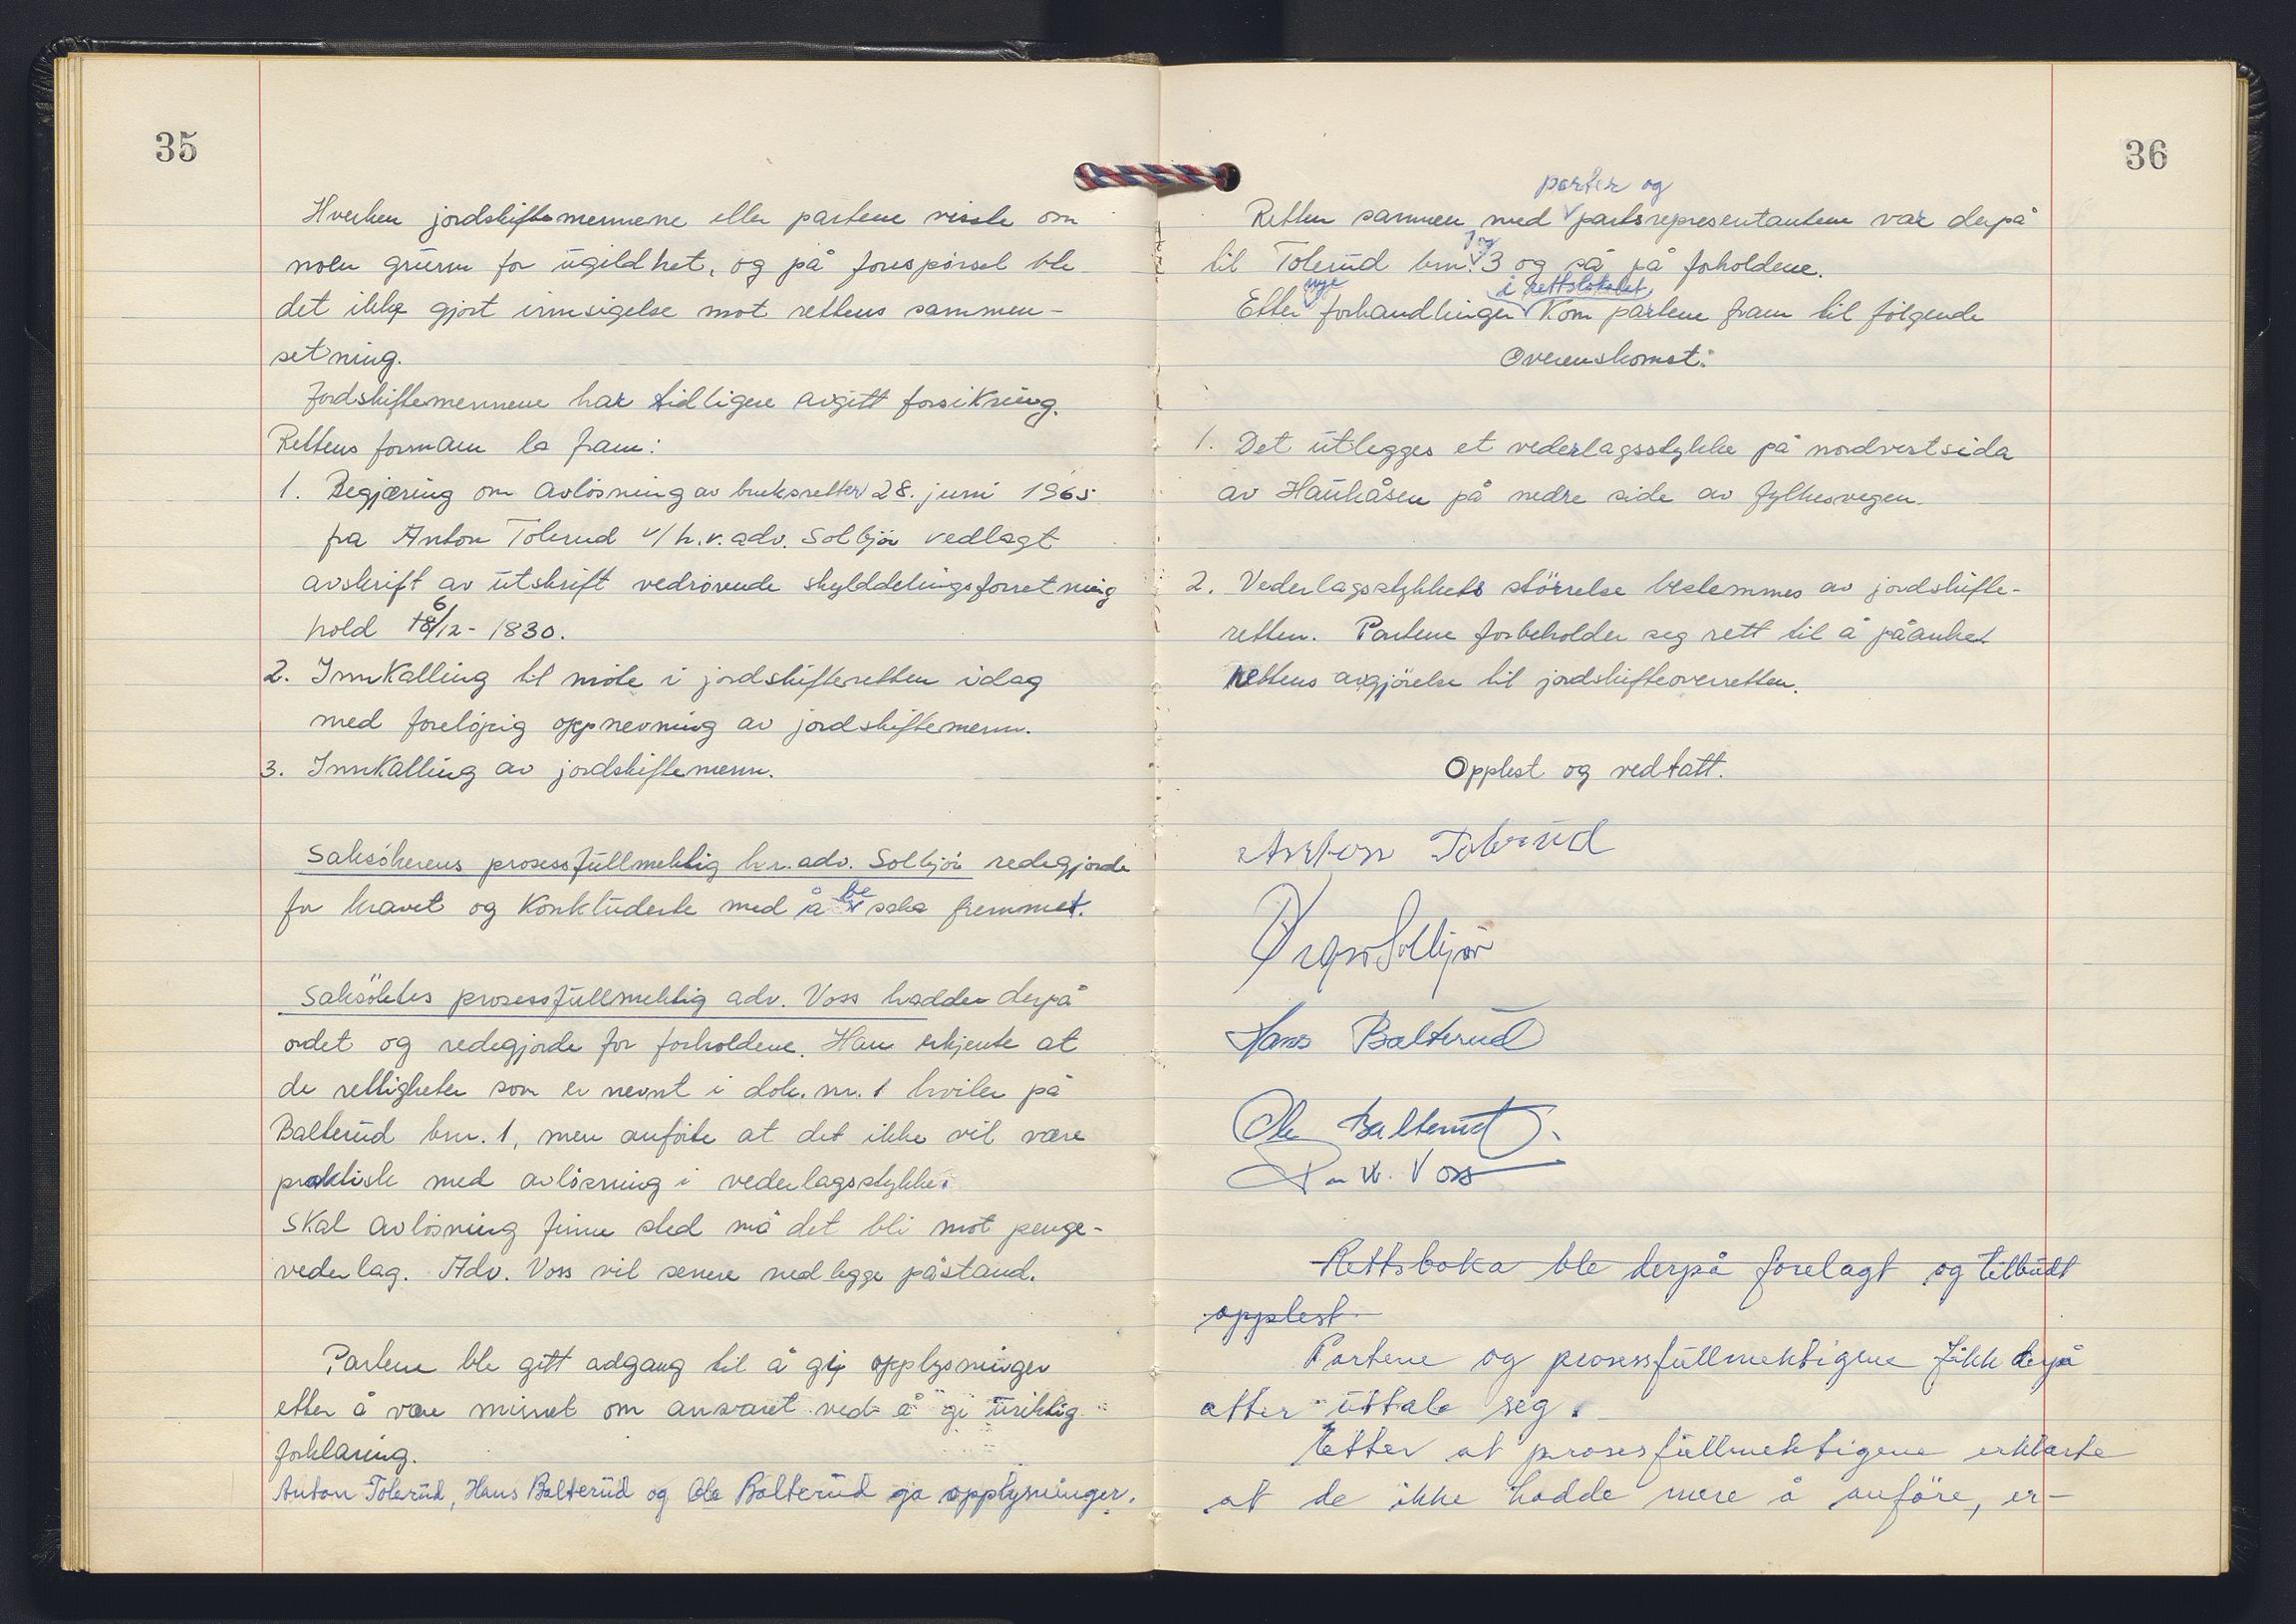 35
Hverken jordskiftemennene eller partene visste om
noen grunn for ugildhet, og på forespørsel ble
det ikke gjort innsigelse mot rettens sammen-
setning.
Jordskiftemennene har tidligere avgitt forsikring.
Rettens formann la fram:
1. Begjæring om avløsning av bruksretter 28. juni 1965
fra Anton Tolerud v/h.r.adv. Solbjør vedlagt
avskrift av utskrift vedrørende skylddelingsforretning
hold 6/12-1830.
2. Innkalling til møte i jordskifteretten idag
med foreløpig oppnevning av jordskiftemenn.
3. Innkalling av jordskiftemenn.
Saksøkerens prosessfullmektig h.r.adv. Solbjør redegjorde
for kravet og konkluderte med å be saka fremmet.
Saksøktes prosessfullmektig adv. Voss hadde derpå
ordet og redegjorde for forholdene. Han erkjente at
de rettigheter som er nevnt i dok. nr. 1 hviler på
Balterud bnr. 1, men anførte at det ikke vil være
praktisk med avløsning i vederlagsstykke.
Skal avløsning finne sted må det bli mot penge-
vederlag. Adv. Voss vil senere nedlegge påstand.
Partene ble gitt adgang til å gi opplysninger
etter å være minnet om ansvaret ved å gi uriktig
forklaring.
Anton Tolerud, Hans Balterud og Ole Balterud ga opplysninger.
36
parter og
Retten sammen med partsrepresentantene var derpå
1 og
til Tolerud bnr. 3 og så på forholdene.
nye i rettslokalet
Etter forhandlinger kom partene fram til følgende
Overenskomst:
1. Det utlegges et vederlagsstykke på nordvestsida
av Haukåsen på nedre side av fylkesvegen.
2. Vederlagsstykkets størrelse bestemmes av jordskifte-
retten. Partene forbeholder seg rett til å påanke
rettens avgjørelse til jordskifteoverretten.
Opplest og vedtatt.
Anton Tolerud
Solbjør
Hans Balterud
Ole Balterud.
Voss
Rettsboka ble derpå forelagt og tilbudt
opplest
Partene og prosessfullmektigene fikk derpå
atter uttale seg.
Etter at prosesfullmektigene erklærte
at de ikke hadde mere å anføre, er-